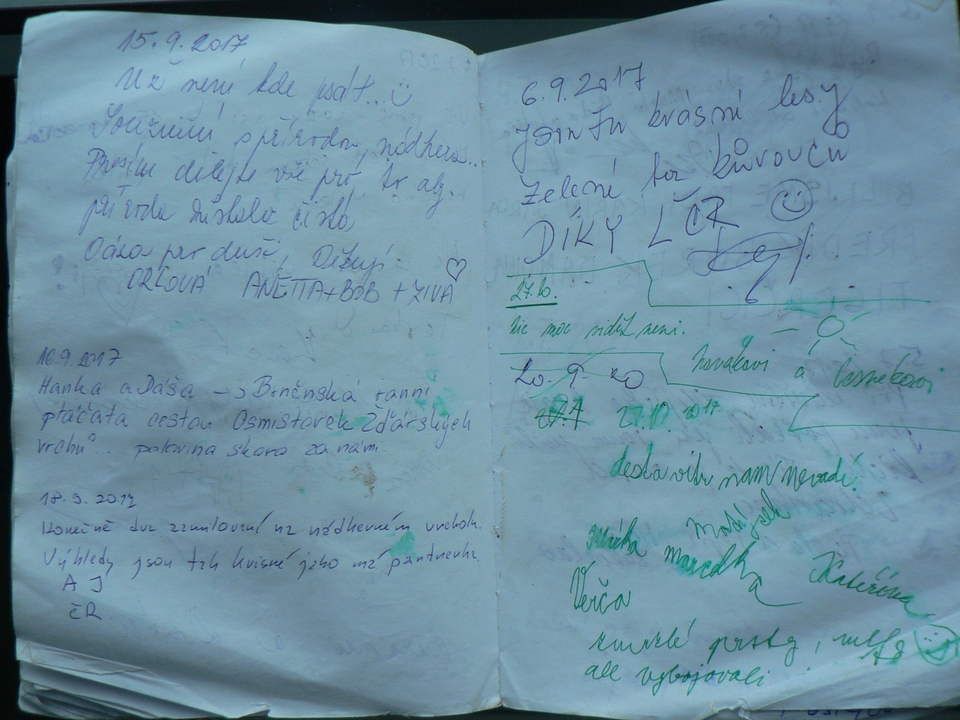 15.9.2017
Už není kde psát...
Souznění s přírodou, nádhera...
Prosím dělejte vše pro to, aby
příroda zůstala čistá,
Oáza pro duši, Děkuji
ORLOVÁ ANETTA+BOB + ZIVA
16.9.2017
Hanka a Dáša -> Brněnská ranní
ptáčata cestou Osmistovek Žďárských
vrchů. polovina skoro za námi
18.9.2017
Konečně dva zamilovaní na nádherném vrcholu.
Výhledy jsou tak krásné jako má partnerka.
A J
ČR
6.9.2017
Jsou tu krásné lesy
zelené bez kůrovců
DÍKY LČR
27.10.
nic moc vidět není.
novákovi a
20-9-20
27.10 2017
déšť a vítr nám nevadí!
Matýsek
marcelka
Verča
Kateřina
zmrzlé prsty,
ale vybojovali